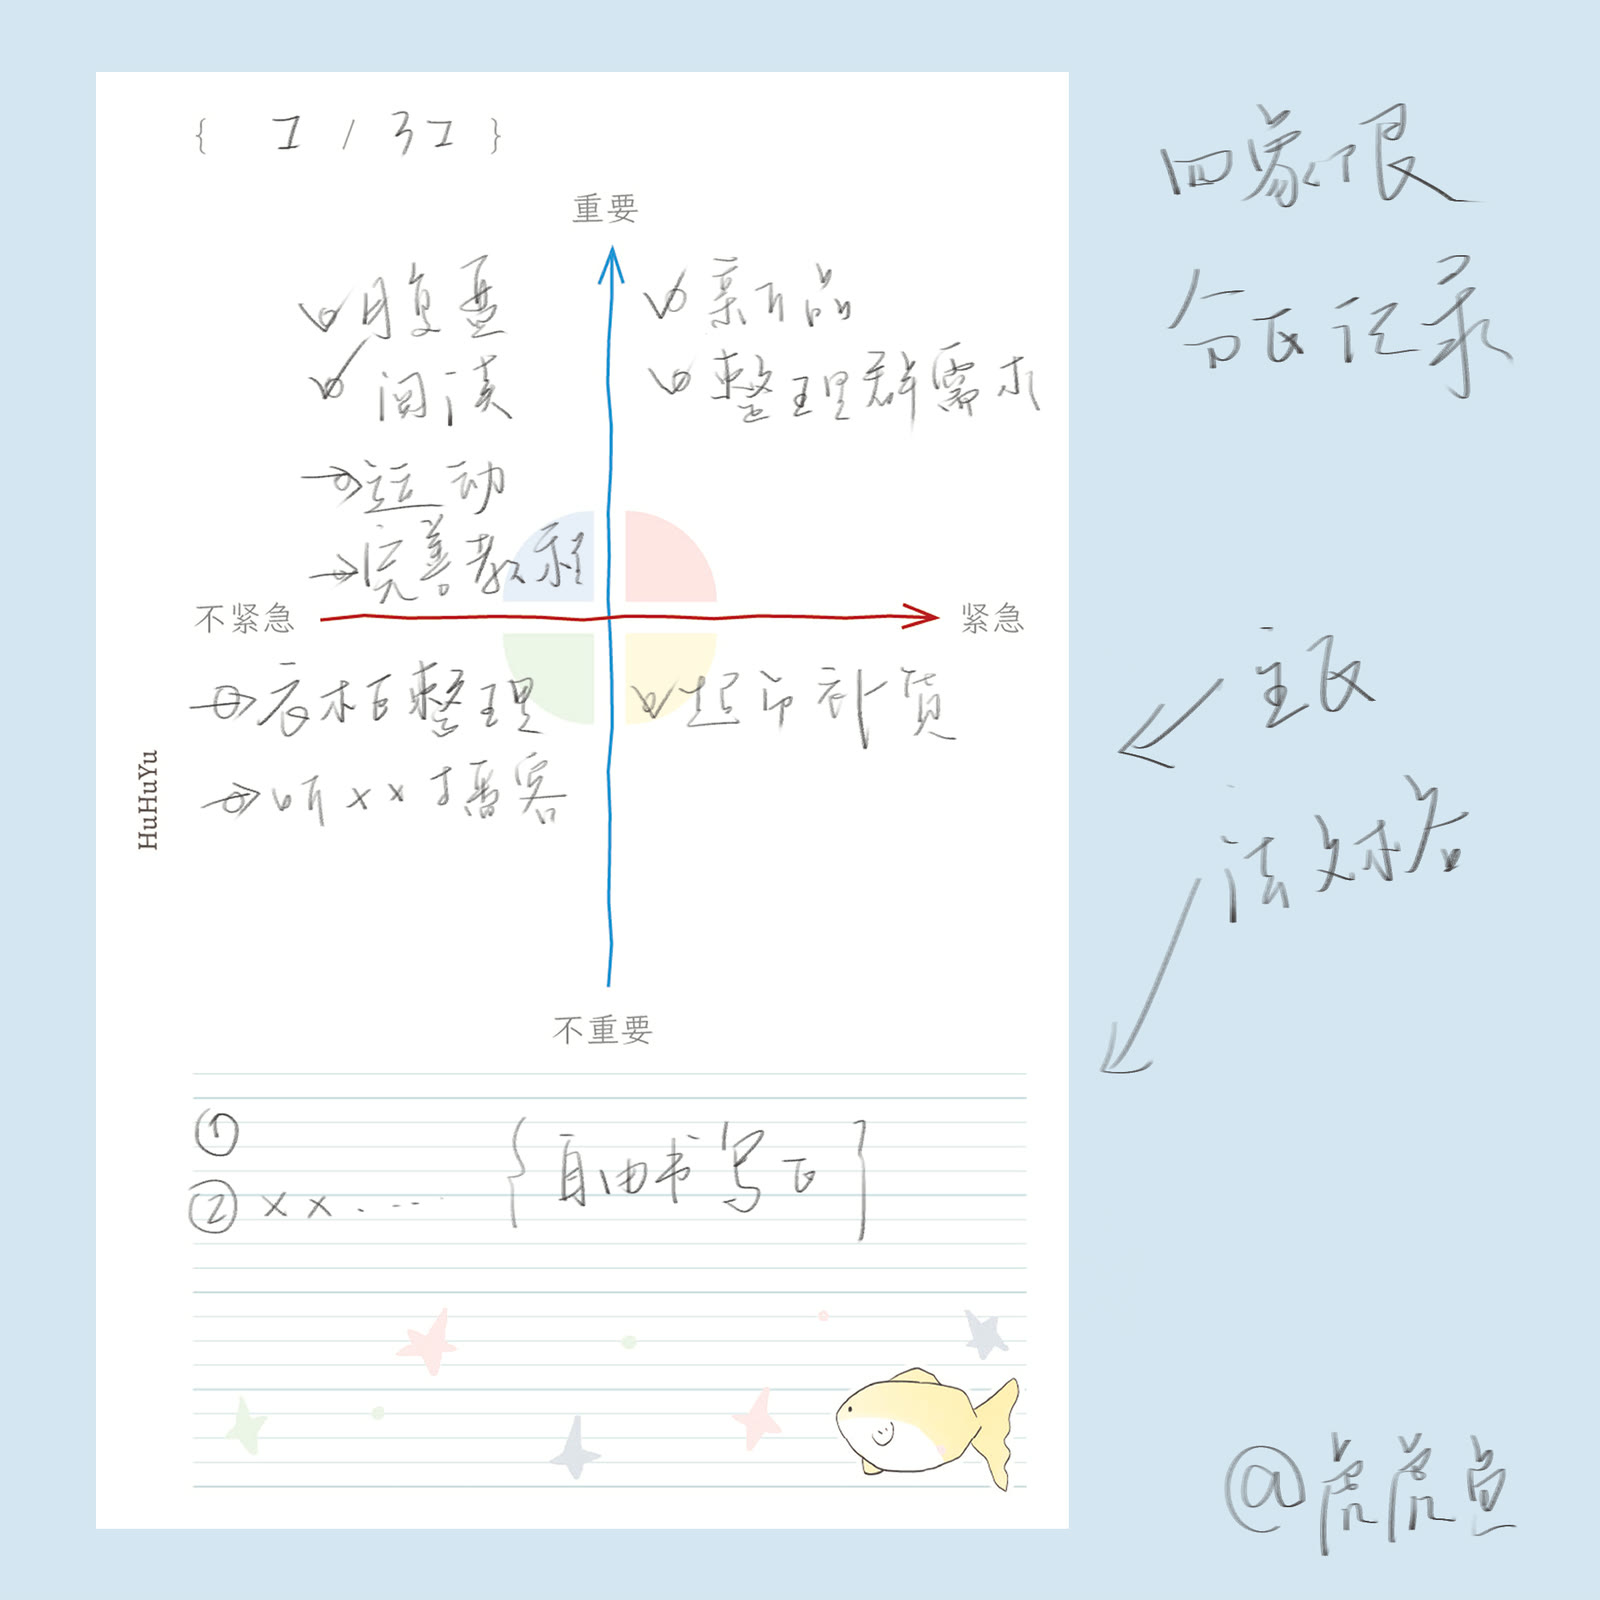 { 1 / 31 }
重要
月复盘
阅读
运动
完善教程
新品
整理群需求
不紧急
紧急
衣柜整理
听××播客
起印补货
不重要
HuHuYu
①
②××.---
{自由书写区}
四象限
分区记录
主区
@虎虎鱼